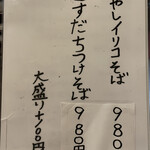 やしイリコそば 980
すだちつけそば 980円
大盛り+100円